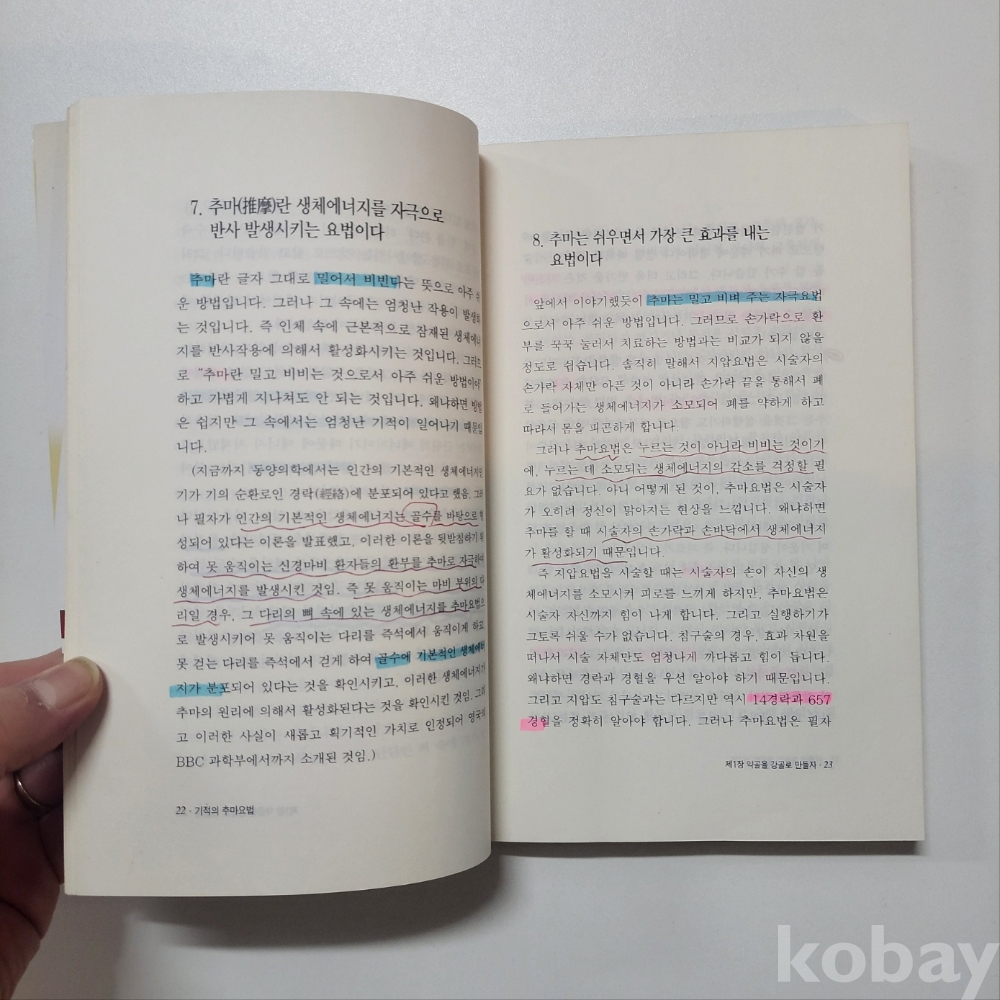 7. 추마(推摩)란 생체에너지를 자극으로
반사 발생시키는 요법이다
추마란 글자 그대로 밀어서 비빈다는 뜻으로 아주
운 방법입니다. 그러나 그 속에는 엄청난 작용이 발생하
는 것입니다. 즉 인체 속에 근본적으로 잠재된 생체에너
지를 반사작용에 의해서 활성화시키는 것입니다. 그러므
로 “추마란 밀고 비비는 것으로서 아주 쉬운 방법이야”
하고 가볍게 지나쳐도 안 되는 것입니다. 왜냐하면 방법
은 쉽지만 그 속에서는 엄청난 기적이 일어나기 때문입
니다.
(지금까지 동양의학에서는 인간의 기본적인 생체에너지인
기가 기의 순환로인 경락(經絡)에 분포되어 있다고 했음. 그러
나 필자가 인간의 기본적인 생체에너지는 골수를 바탕으로
성되어 있다는 이론을 발표했고, 이러한 이론을 뒷받침하기 위
하여 못 움직이는 신경마비 환자들의 환부를 추마로 자극하여
생체에너지를 발생시킨 것임. 즉 못 움직이는 마비 부위의 다
리일 경우, 그 다리의 뼈 속에 있는 생체에너지를 추마요법으
로 발생시키어 못 움직이는 다리를 즉석에서 움직이게 하고,
못 걷는 다리를 즉석에서 걷게 하여 골수에 기본적인 생체에너
지가 분포되어 있다는 것을 확인시키고, 이러한 생체에너지가
추마의 원리에 의해서 활성화된다는 것을 확인시킨 것임. 그리
고 이러한 사실이 새롭고 획기적인 가치로 인정되어 영국의
BBC 과학부에서까지 소개된 것임.)
22 · 기적의 추마요법
8. 추마는 쉬우면서 가장 큰 효과를 내는
요법이다
앞에서 이야기했듯이 추마는 밀고 비벼 주는 자극요법
으로서 아주 쉬운 방법입니다. 그러므로 손가락으로 환
부를 꾹꾹 눌러서 치료하는 방법과는 비교가 되지 않을
정도로 쉽습니다. 솔직히 말해서 지압요법은 시술자의
손가락 자체만 아픈 것이 아니라 손가락 끝을 통해서 폐
로 들어가는 생체에너지가 소모되어 폐를 약하게 하고
따라서 몸을 피곤하게 합니다.
그러나 추마요법은 누르는 것이 아니라 비비는 것이기
에, 누르는 데 소모되는 생체에너지의 감소를 걱정할 필
요가 없습니다. 아니 어떻게 된 것이, 추마요법은 시술자
가 오히려 정신이 맑아지는 현상을 느낍니다. 왜냐하면
추마를 할 때 시술자의 손가락과 손바닥에서 생체에너지
가 활성화되기 때문입니다.
즉 지압요법을 시술할 때는 시술자의 손이 자신의 생
체에너지를 소모시켜 피로를 느끼게 하지만, 추마요법은
시술자 자신까지 힘이 나게 합니다. 그리고 실행하기가
그토록 쉬울 수가 없습니다. 침구술의 경우, 효과 차원을
떠나서 시술 자체만도 엄청나게 까다롭고 힘이 듭니다.
왜냐하면 경락과 경혈을 우선 알아야 하기 때문입니다.
그리고 지압도 침구술과는 다르지만 역시 14경락과 657
경혈을 정확히 알아야 합니다. 그러나 추마요법은 필자
제1장 약골을 강골로 만들자 · 23
kobay